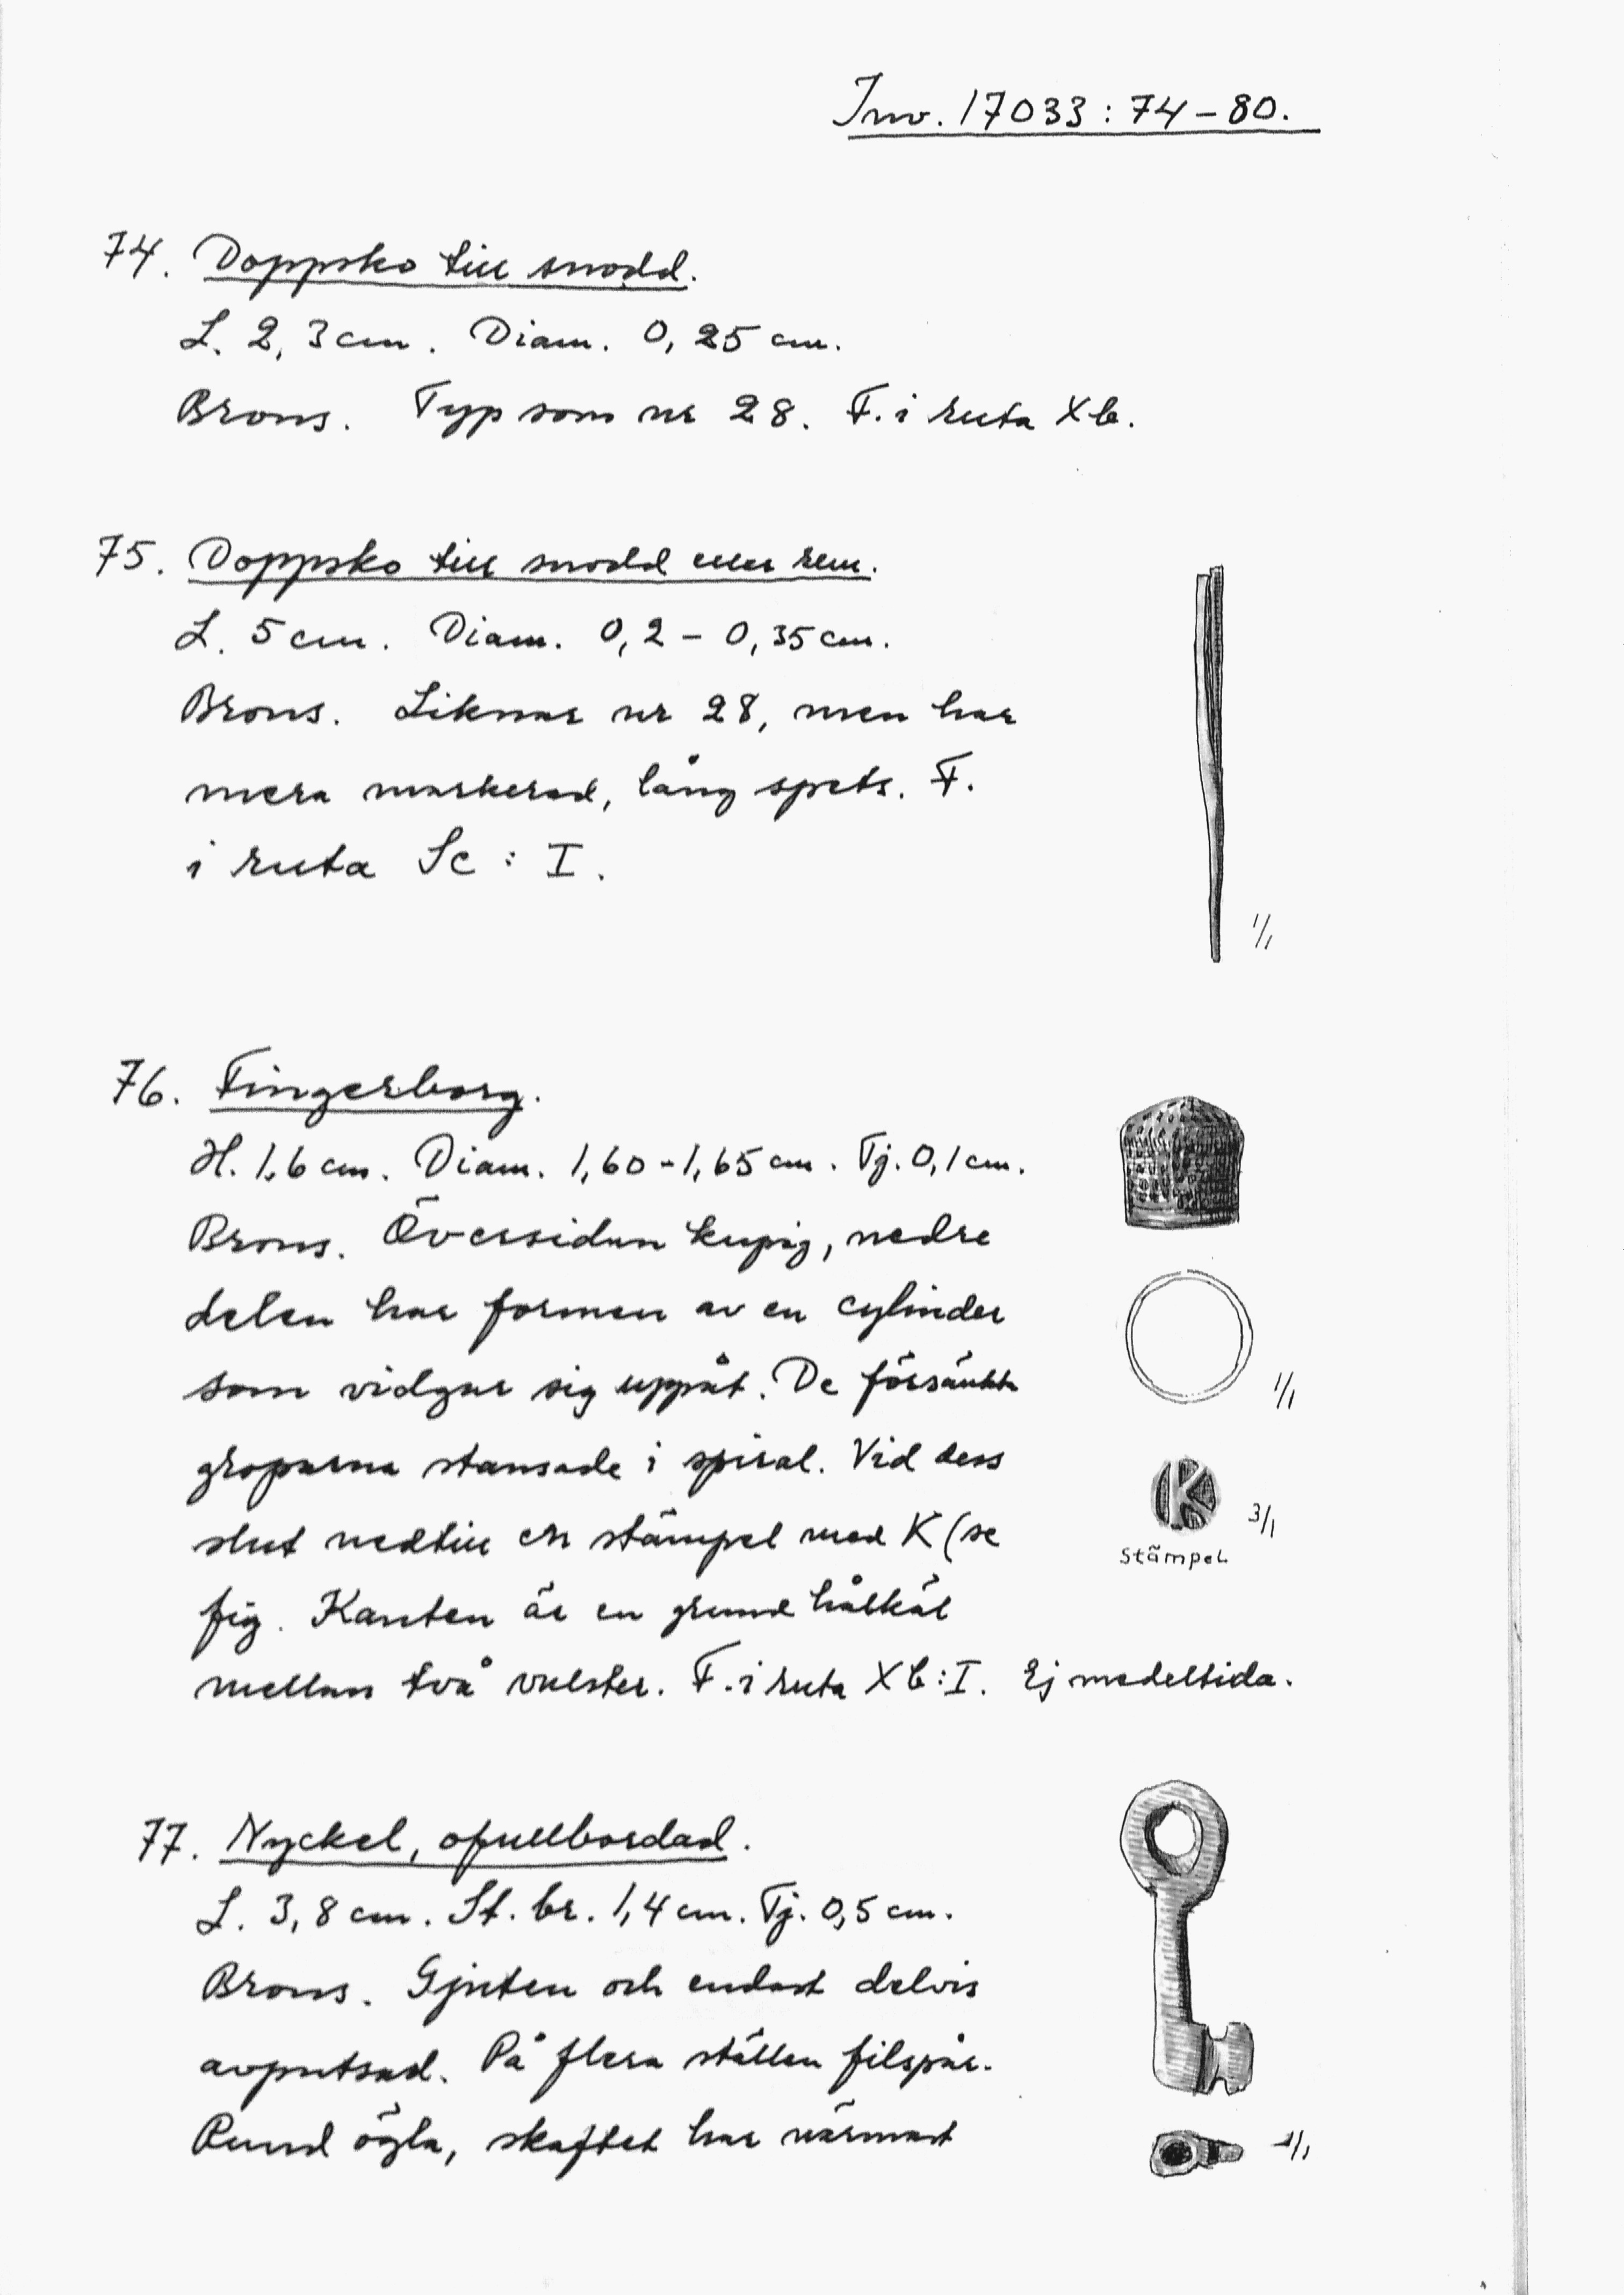 Inv. 17033:74-80.
74. Doppsko till snodd.
L. 2,3 cm. Diam. 0,25 cm.
Brons. Typ som nr 28. F. i ruta Xb.
75. Doppsko till snodd eller rem.
L. 5 cm. Diam. 0,2 - 0,35 cm.
Brons. Liknar nr 28, men har
mera markerad, lång spets. F.
i ruta Sc : I.
1/1
76. Fingerborg.
H. 1,6 cm. Diam. 1,60-1,65 cm. Tj. 0,1 cm.
Brons. Översidan kupig, nedre
delen har formen av en cylinder
som vidgar sig uppåt. De försänkta
1/1
groparna stansade i spiral. Vid dess
K
slut nedtill en stämpel med K (se
3/1
Stämpel.
fig. Kanten är en grund hålkäl
mellan två vulster. F. i ruta Xb:I. Ej medeltida.
77. Nyckel, ofullbordad.
L. 3,8 cm. St. br. 1,4 cm. Tj. 0,5 cm.
Brons. Gjuten och endast delvis
avputsad. På flera ställen filspår.
Rund ögla, skaftet har närmast
1/1